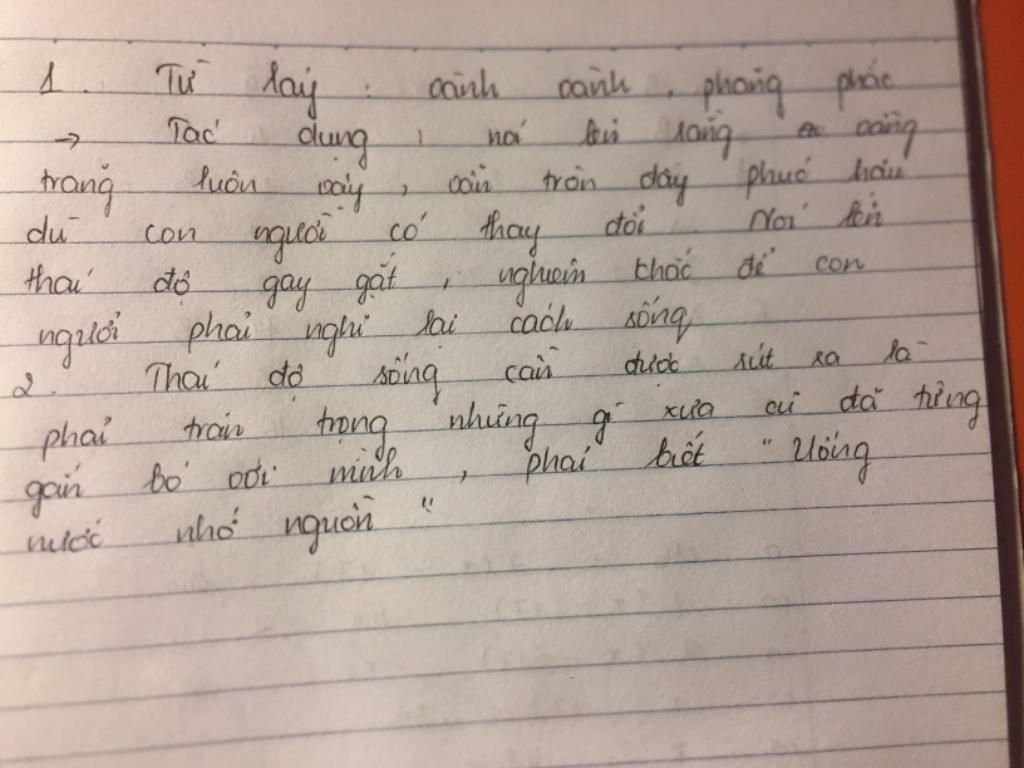 1. Từ láy : vành vạnh, phăng phắc
→ Tác dụng, nói lên rằng vầng
trăng luôn vậy, vẫn tròn đầy phúc hậu
dù con người có thay đổi. Nói lên
thái độ gay gắt, nghiêm khắc để con
người phải nghĩ lại cách sống
2. Thái độ sống cần được rút ra là
phải trân trọng những gì xưa cũ đã từng
gắn bó với mình, phải biết "Uống
nước nhớ nguồn"